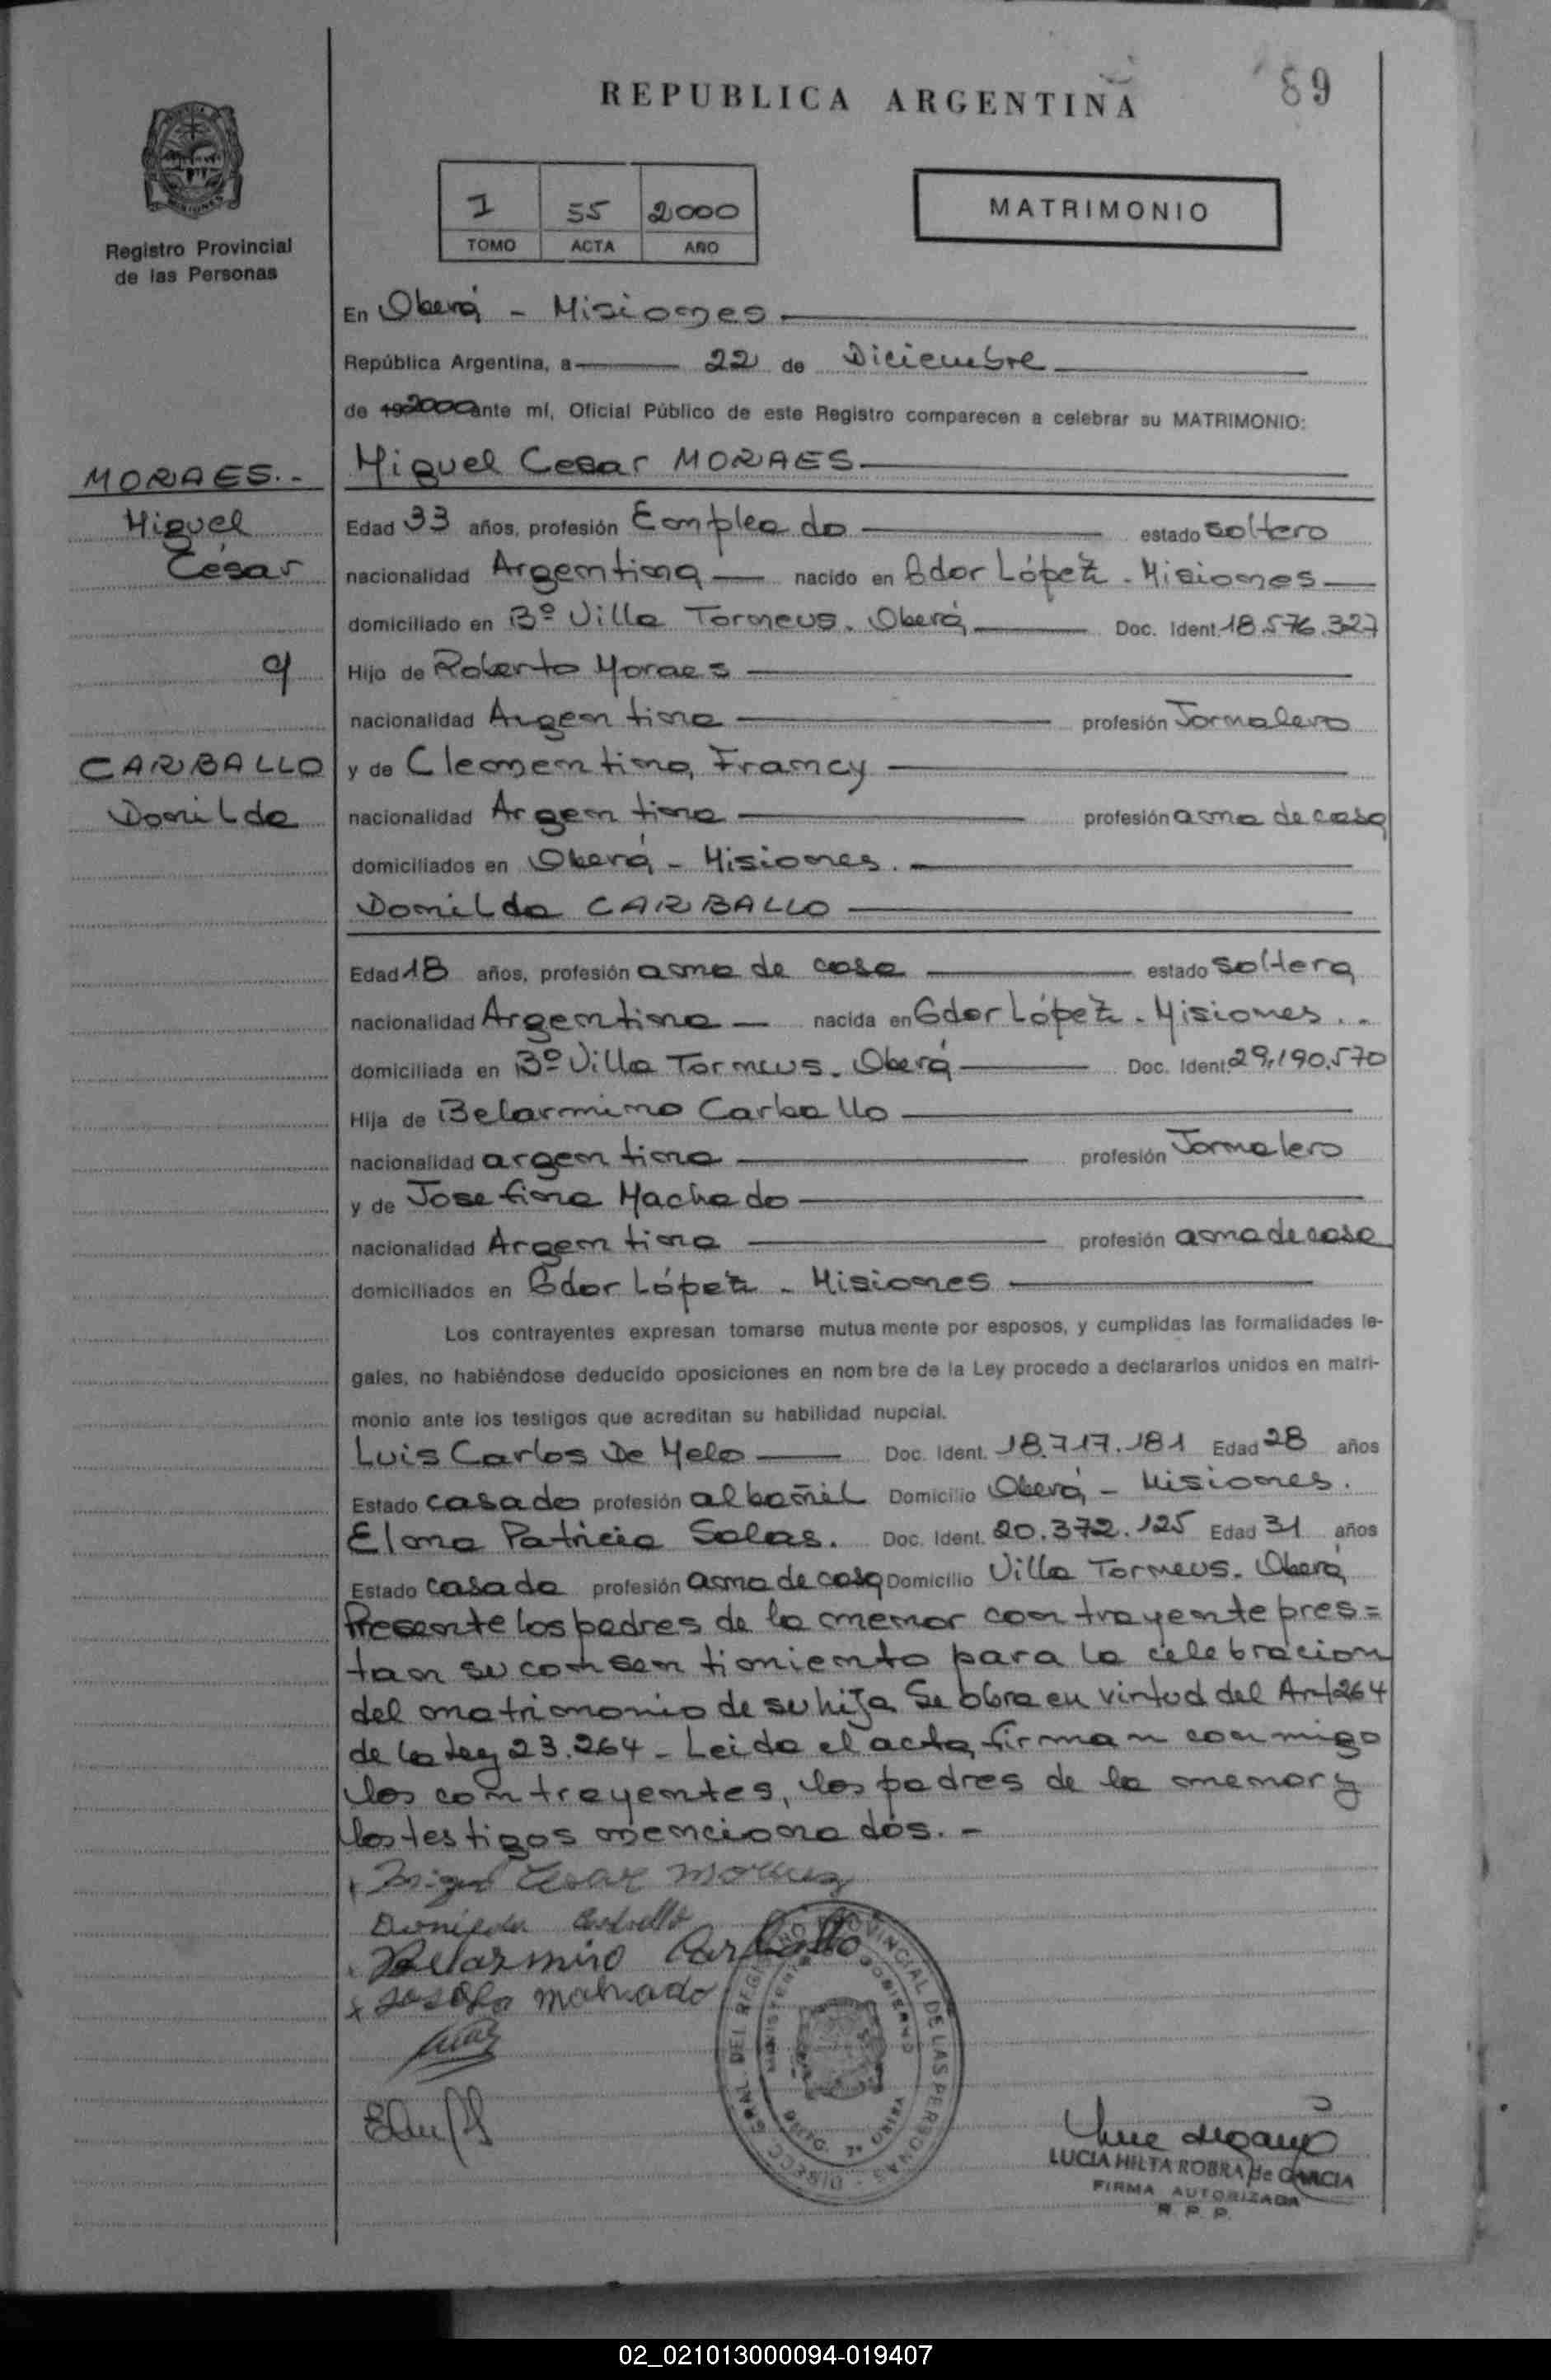 REPUBLICA ARGENTINA
89
Registro Provincial
de las Personas
I 55 2000
TOMO ACTA AÑO
MATRIMONIO
En Oberá - Misiones
República Argentina, a 22 de Diciembre
de 192000 ante mí, Oficial Público de este Registro comparecen a celebrar su MATRIMONIO:
MORAES.-
Miguel
César
y
CARBALLO
Donilda
Miguel Cesar MORAES
Edad 33 años, profesión Empleado estado soltero
nacionalidad Argentina nacido en Gdor López - Misiones
domiciliado en Bº Villa Torneus. Oberá Doc. Ident. 18.576.327
Hijo de Roberto Moraes
nacionalidad Argentina profesión Jornalero
y de Clementina Francy
nacionalidad Argentina profesión ama de casa
domiciliados en Oberá - Misiones.
Donilda CARBALLO
Edad 18 años, profesión ama de casa estado soltera
nacionalidad Argentina nacida en Gdor López - Misiones..
domiciliada en Bº Villa Torneus. Oberá Doc. Ident. 29.190.570
Hija de Belarmino Carballo
nacionalidad argentina profesión Jornalero
y de Josefina Machado
nacionalidad Argentina profesión ama de casa
domiciliados en Gdor López - Misiones
Los contrayentes expresan tomarse mutua mente por esposos, y cumplidas las formalidades le-
gales, no habiéndose deducido oposiciones en nom bre de la Ley procedo a declararlos unidos en matri-
monio ante los testigos que acreditan su habilidad nupcial.
Luis Carlos De Melo Doc. Ident. 18.717.181 Edad 28 años
Estado casado profesión albañil Domicilio Oberá - Misiones.
Elma Patricia Salas. Doc. Ident. 20.372.125 Edad 31 años
Estado casada profesión ama de casa Domicilio Villa Torneus. Oberá
Presente los padres de la menor contrayente pres=
tan su consentimiento para la celebracion
del matrimonio de su hija Se obra en virtud del Art 264
de la Ley 23.264 - Leida el acta, firman conmigo
los contrayentes, los padres de la menor y
los testigos mencionados.-
Miguel Cesar Moraes
Donilda Carballo
Belarmino Carballo
x Machado
DIRECC. GRAL. DEL REGISTRO PROVINCIAL DE LAS PERSONAS
MINISTERIO GOBIERNO
LUCIA HILTA ROBRA de GARCIA
FIRMA AUTORIZADA
R. P. P.
02_021013000094-019407